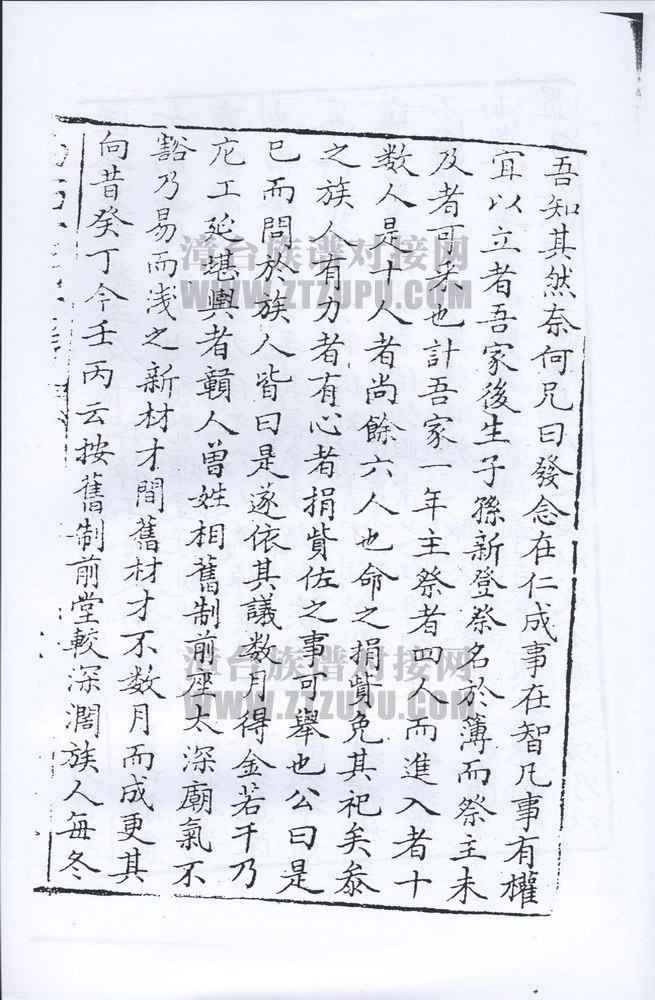 吾知其然奈何兄曰發念在仁成事在智凡事有權
宜以立者吾家後生子孫新登祭名於簿而祭主未
及者可采也計吾家一年主祭者四人而進入者十
数人是十人者尚餘六人也命之捐貲免其祀矣叅
之族人有力者有心者捐貲佐之事可舉也公曰是
已而問於族人皆曰是遂依其議数月得金若干乃
庀工延堪輿者贛人曽姓相舊制前座太深廟氣不
豁乃易而浅之新材才間舊材才不数月而成更其
向昔癸丁今壬丙云按舊制前堂較深濶族人每冬
漳台族谱对接网
WWW.ZTZUPU.COM
漳台族谱对接网
WWW.ZTZUPU.COM